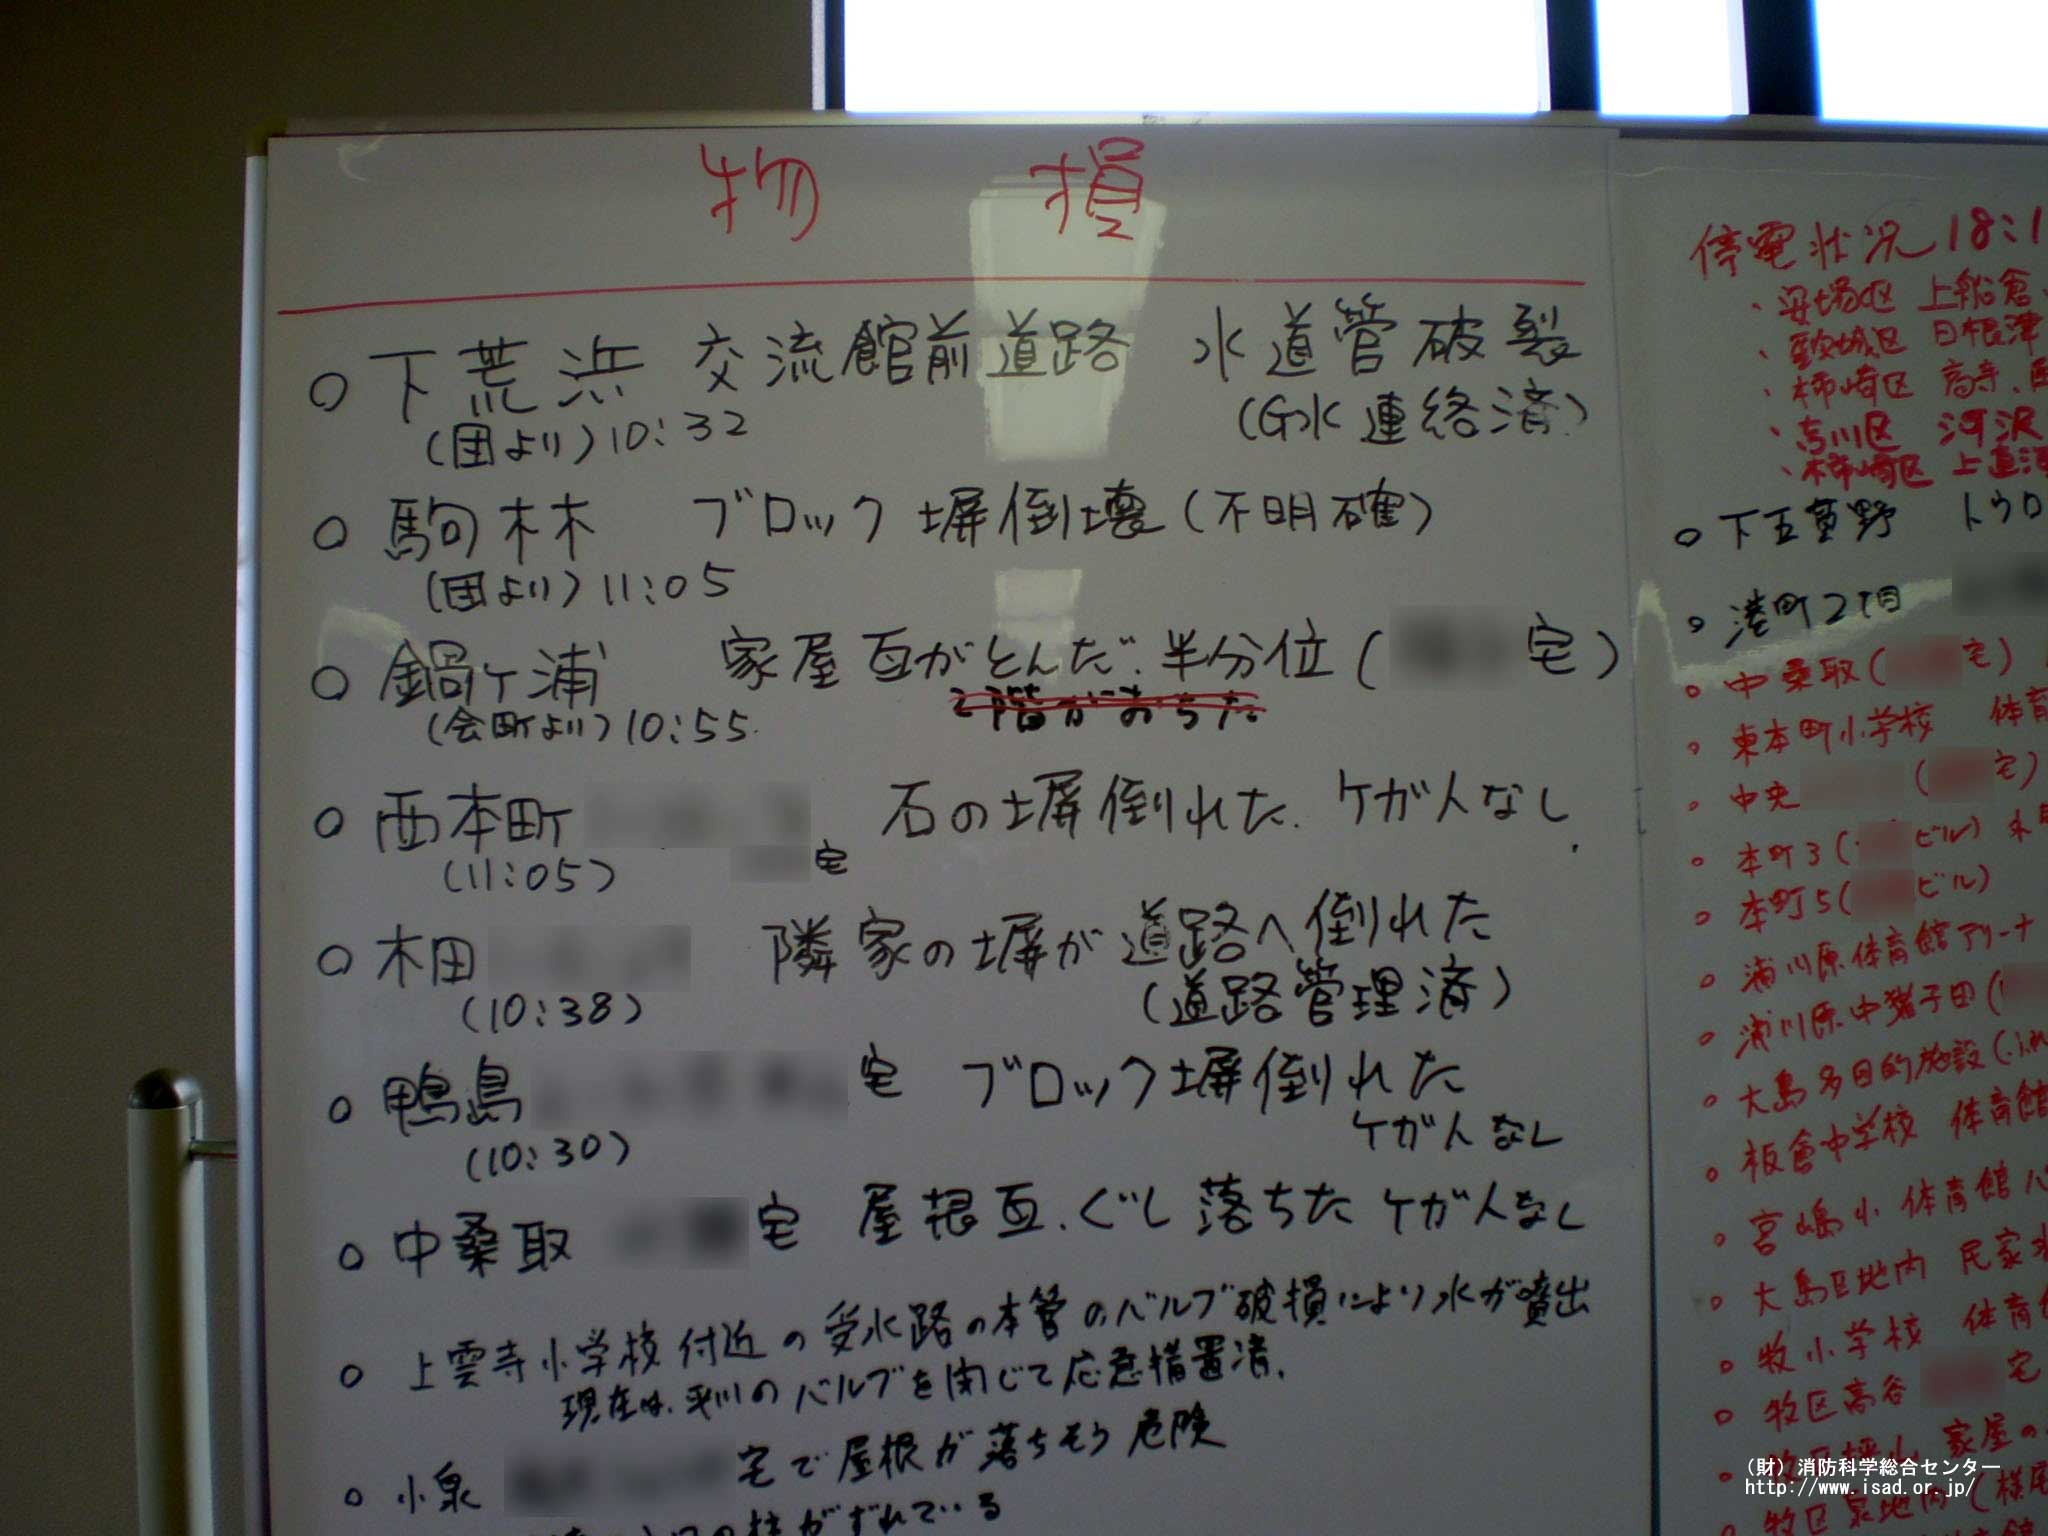 物損
○ 下荒浜 交流館前道路 水道管破裂
(団より) 10:32 (G水連絡済)
○ 駒林 ブロック塀倒壊(不明確)
(団より) 11:05
○ 鍋ヶ浦 家屋瓦がとんだ.半分位( 宅)
2階がおちた
(会町より) 10:55
○ 西本町 宅 石の塀倒れた.ケガ人なし.
(11:05)
○ 木田 隣家の塀が道路へ倒れた
(10:38) (道路管理済)
○ 鴨島 宅 ブロック塀倒れた
(10:30) ケガ人なし
○ 中桑取 宅 屋根瓦.ぐし落ちた ケガ人なし
○ 上雲寺小学校付近の受水路の本管のバルブ破損により水が噴出
現在は のバルブを閉じて応急措置済.
○ 小泉 宅で屋根が落ちそう 危険
柱がずれている
停電状況 18:1
・安塚区 上船倉
・ 区 日根津
・柿崎区 高寺、
・吉川区 河沢
・柿崎区 上直海
○ 下五貫野 トウロ
○ 港町2丁目
○ 中桑取( 宅)
○ 東本町小学校 体育
○ 中央 ( 宅)
○ 本町3( ビル)
○ 本町5( ビル)
○ 浦川原体育館アリーナ
○ 浦川原中猪子田(
○ 大島多目的施設(
○ 板倉中学校 体育館
○ 宮嶋小 体育館
○ 大島区地内 民家
○ 牧小学校 体育
○ 牧区高谷 宅
○ 牧区 家屋の
牧区泉地内(
(財)消防科学総合センター
http://www.isad.or.jp/